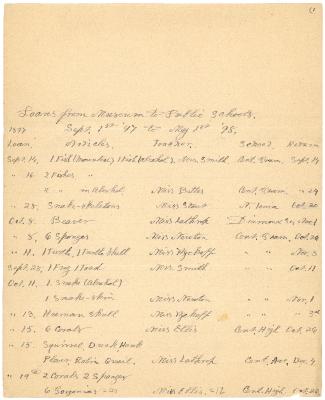 Loans from Museum to Public Schools.
1897 Sept. 1st '97 to May 1st '98.
Loan Articles. Teacher. School. Return
Sept. 14, 1 Fish (mounted) 1 Fish (alcohol). Miss Smith Cent. Gram. Sept 14
" 16 2 Fishes "
2 " in alcohol. Miss Butler Cent. Gram. " 29
" 28. Snake-skeletons Miss N. Ionia Oct. 20
Oct. 8. Beaver Miss Lathrop Nov. 1
" 8, 6 Sponges Miss Newton Cent. Gram. Oct. 20
" 11, 1 Turtle, 1 Turtle Skull Miss Wyckoff " " Nov. 3
Sept. 28, 1 Frog 1 Toad Miss Smith " " Oct. 11
Oct. 11, 1 Snake (alcohol)
1 Snake-skin Miss Newton " " Nov. 1
" 13, Human Skull Miss Wyckoff " " " 3rd
" 15. 6 Corals Miss Ellis Cent. High. Oct. 26
" 15. Squirrel Duck Hawk
Plover, Robin Quail. Miss Lathrop Cent. Ave. Dec. 4
" 19th 2 Corals 2 Sponges
6 Miss Ellis Cent. High. Oct. 26